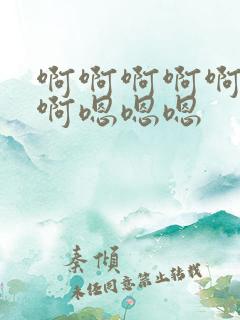 啊啊啊啊啊
啊嗯嗯嗯
秦傾
未经同意禁止转载